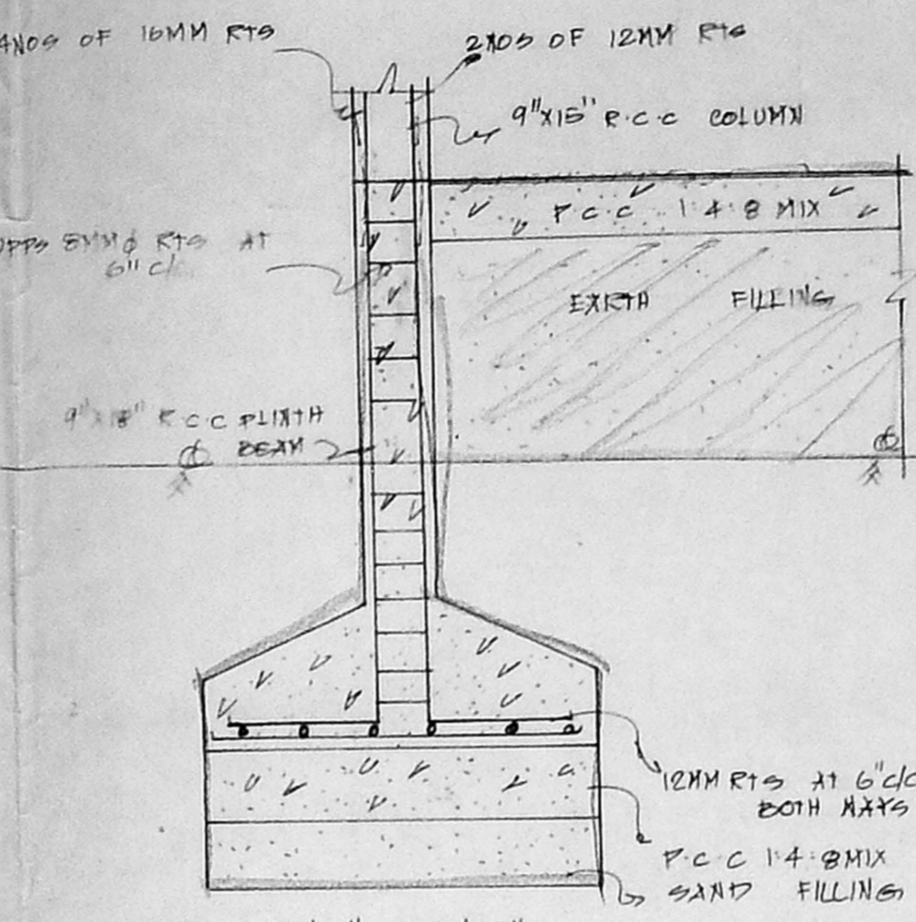 4NOS OF 16MM RTS
2NOS OF 12MM RTS
9"X15" R.C.C COLUMN
P.C.C 1:4:8 MIX
8MMϕ RTS AT
6" C/
EARTH FILLING
9"X18" R.C.C PLINTH
BEAM
12MM RTS AT 6"C/C
BOTH WAYS
P.C.C 1:4:8MIX
SAND FILLING